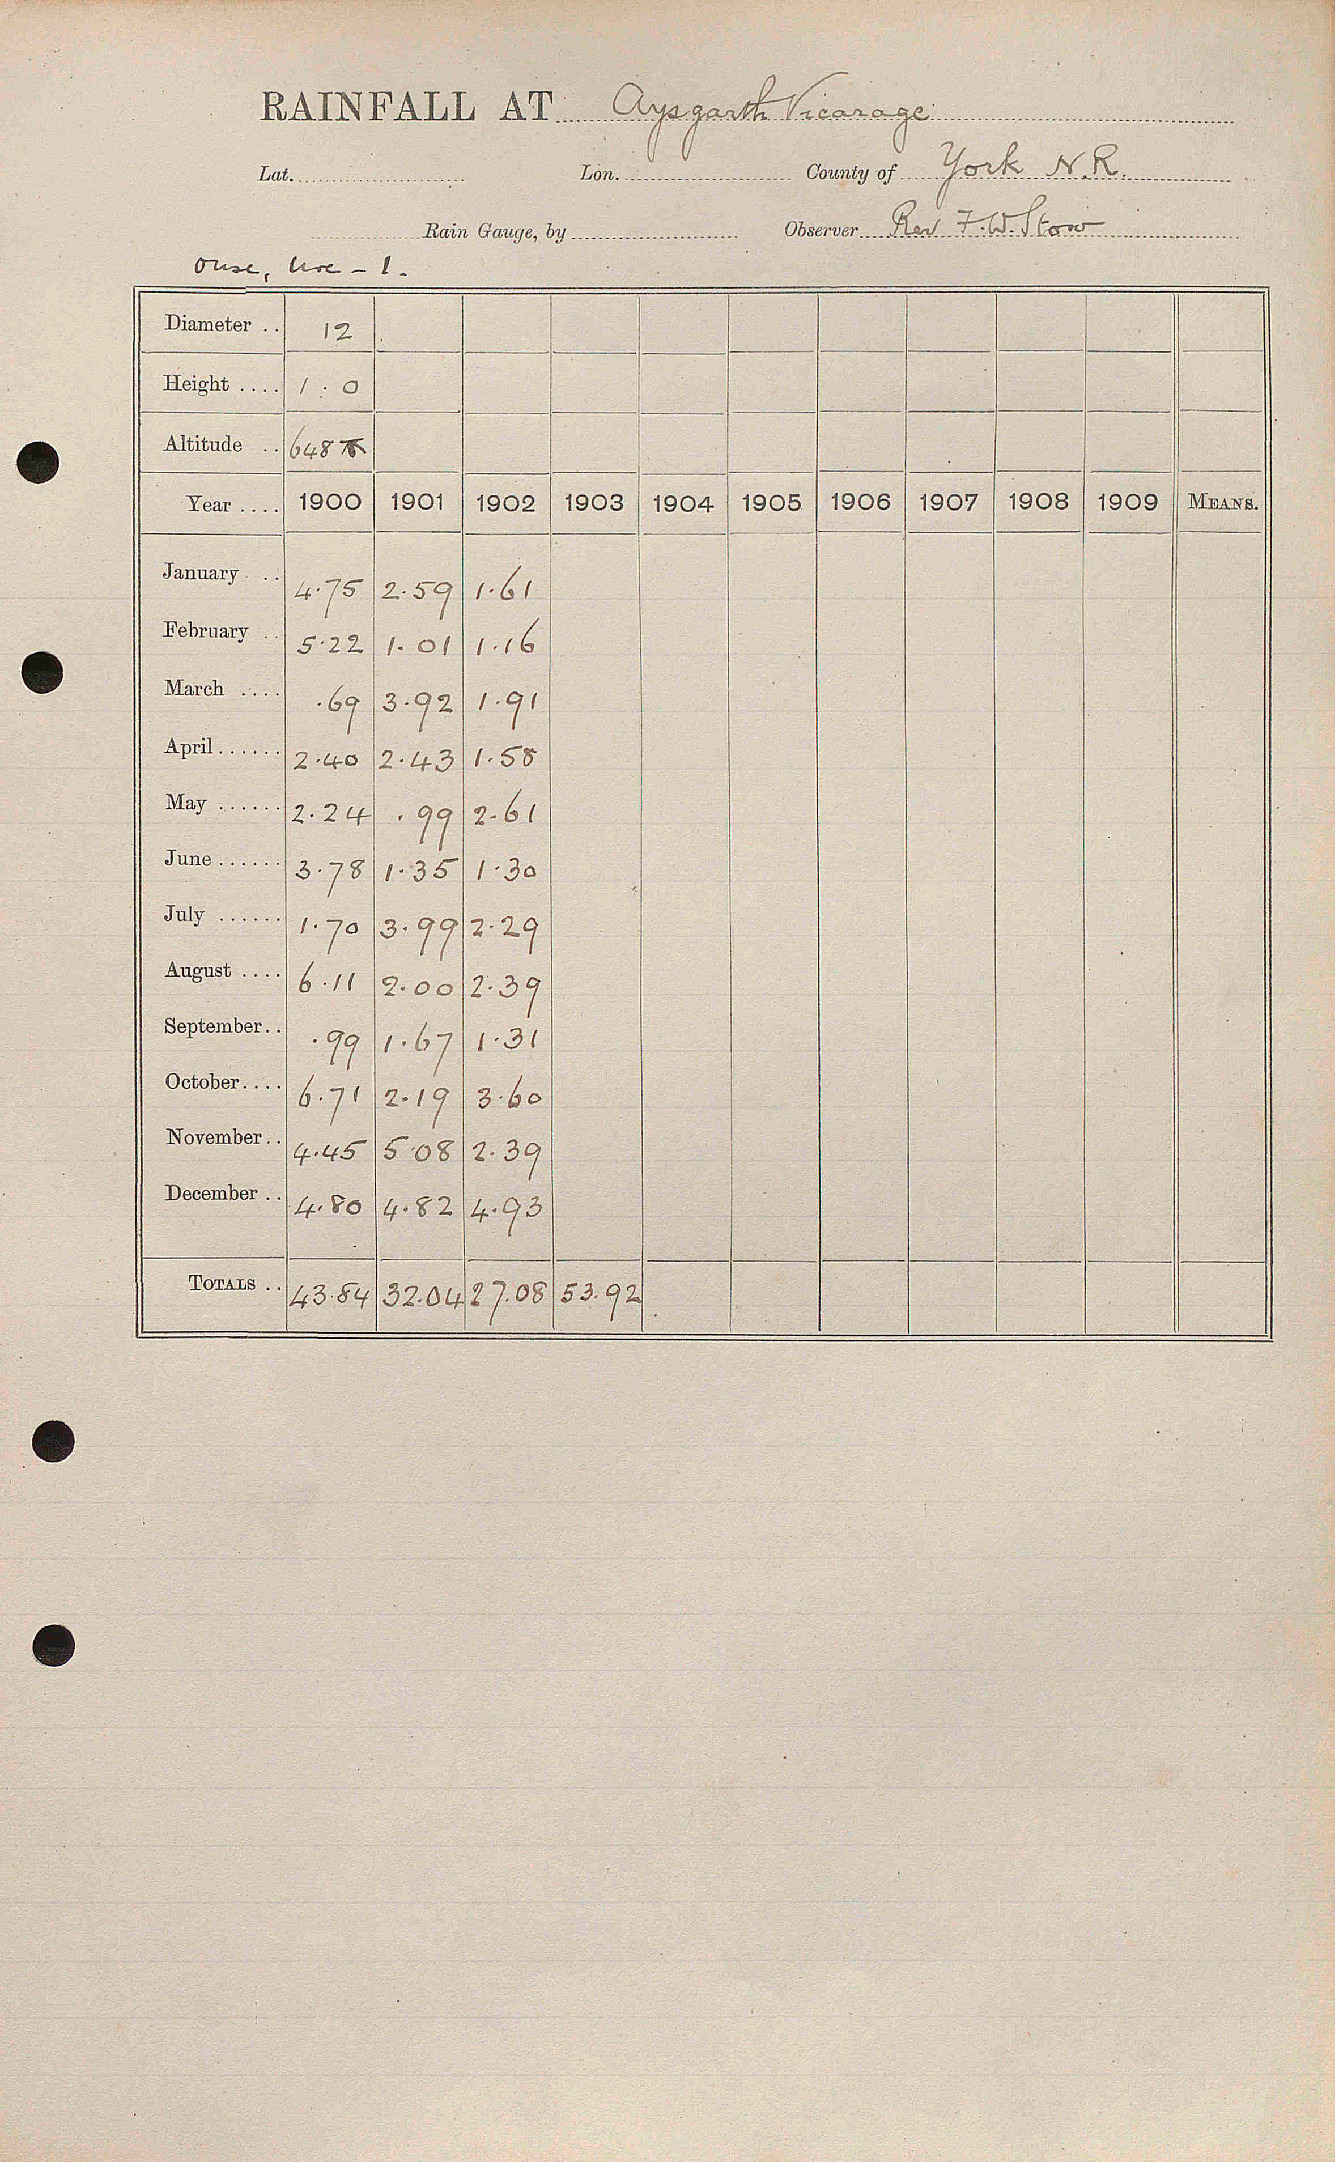 RAINFALL AT Aysgarth Vicarage
Lat. Lon. County of York N.R.
Rain Gauge, by Observer Rev F.W. Stow
Ouse, Ure - 1.
Diameter .. 12
Height .... 1 . 0
Altitude .. 648
Year .... 1900 1901 1902 1903 1904 1905 1906 1907 1908 1909 MEANS.
January .. 4.75 2.59 1.61
February .. 5.22 1.01 1.16
March .... .69 3.92 1.91
April ...... 2.40 2.43 1.58
May ...... 2.24 .99 2.61
June ...... 3.78 1.35 1.30
July ...... 1.70 3.99 2.29
August .... 6.11 2.00 2.39
September.. .99 1.67 1.31
October.... 6.71 2.19 3.60
November.. 4.45 5.08 2.39
December .. 4.80 4.82 4.93
TOTALS .. 43.84 32.04 27.08 53.92